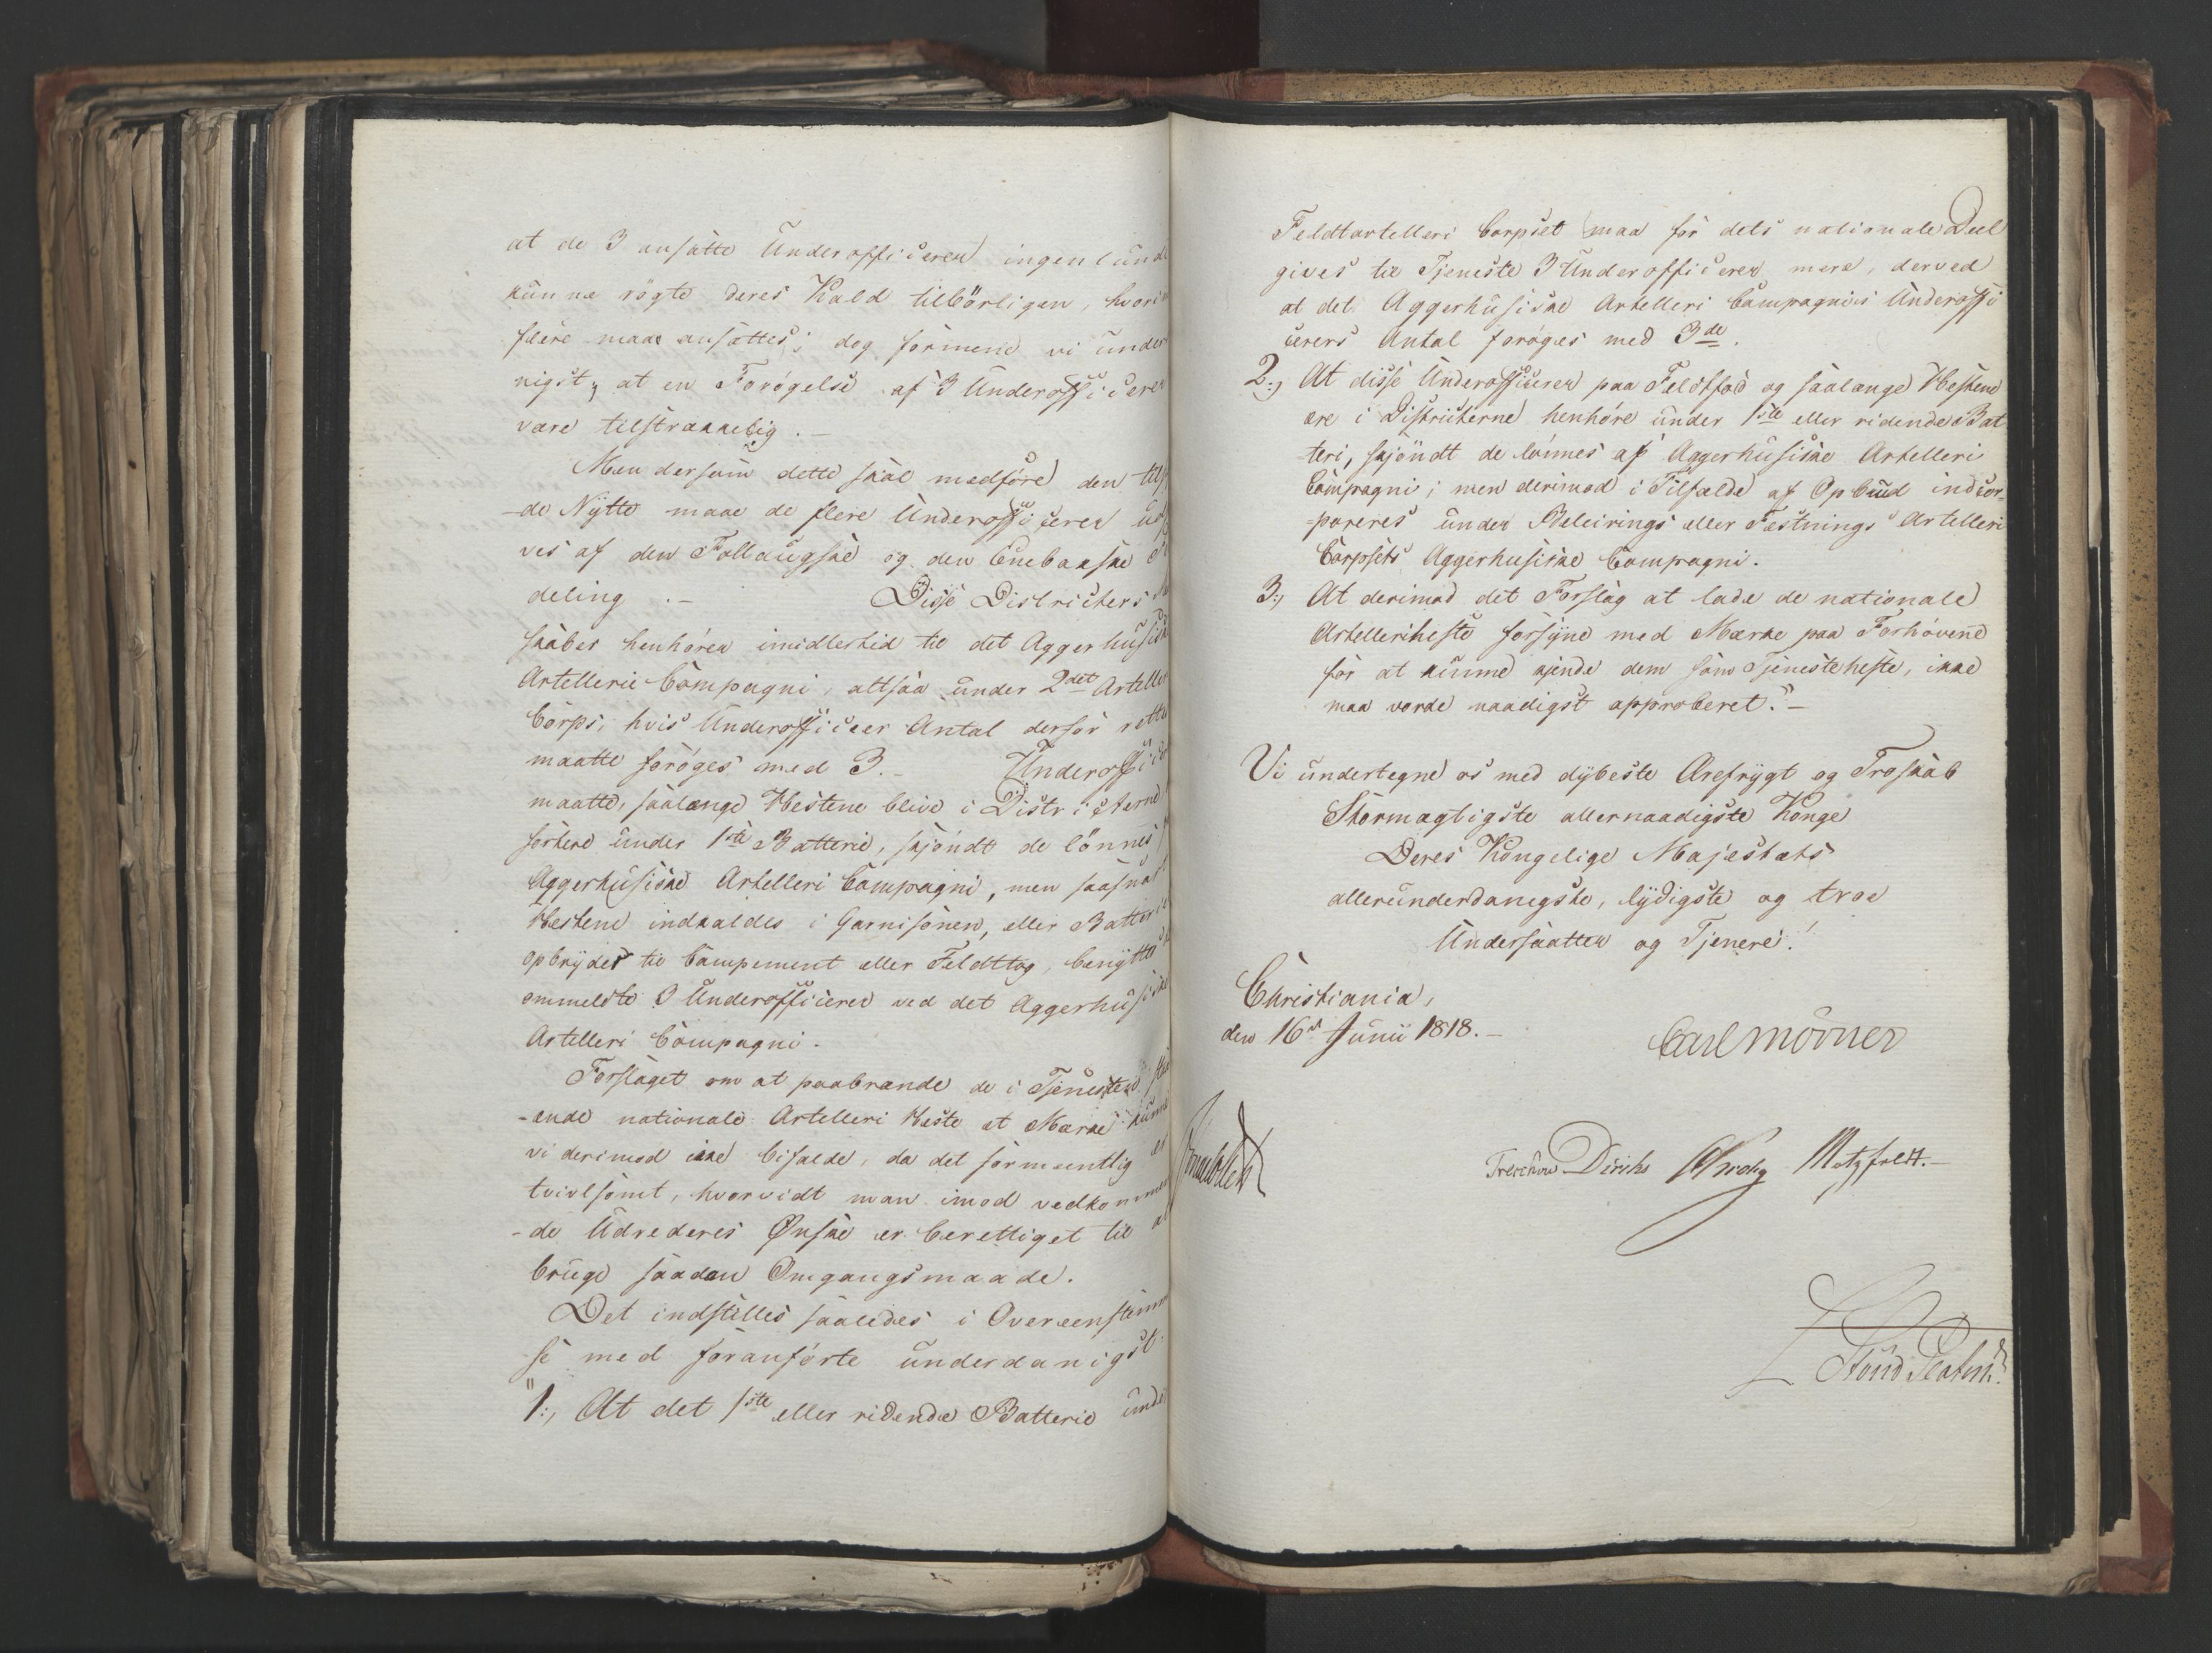 at de 3 ansatte Underofficerer ingenlund
kunne røgte deres Kald tilbörligen, hvori
flere maae ansættes; dog formene vi under
nigst, at en Forøgelse af 3 Underofficerer
være tilstrækkelig. —
Men dersom dette skal medføre den
-de Nytte maae de flere Underofficerer
ves af den Follaugske og den Enebakske
deling. — Disse Districters
skaber henhører imidlertid til det Aggerhusiske
Artellerie Compagni, altsaa under 2det Artelle
Corps, hvis Underofficeer Antal derfor rette
maatte forøges med 3. — Underoffice
maatte, saalænge Hestene blive i Districterne
sortere under 1ste Batterie, skjöndt de lönnes
Aggerhusiske Artelleri Compagni, men saasnart
Hestene indkaldes i Garnisonen, eller Batterie
opbryder til Campement eller Feldttog, benyttes
ommeldte 3 Underofficerer ved det Aggerhusiske
Artelleri Compagni.
Forslaget om at paabrænde de i Tjenesten
-ende nationale Artelleri Heste et Mærke kunne
vi derimod ikke bifalde, da det formeentlig er
tvivlsomt, hvorvidt man imod vedkommen
-de Udrederes Ønske er berettiget til at
bruge saadan Omgangsmaade.
Det indstilles saaledes i Overeenstemm
se med foranførte underdanigst
"1:, At det 1ste eller ridende Batterie under
Feldtartelleri Corpset maa for dets nationale Deel
gives til Tjeneste 3 Underofficerer mere, derved
at det Aggerhusiske Artelleri Compagnies Underoffi
cerers Antal forøges med 3de.
2:, At disse Underofficerer paa Feldtfod og saalænge Hestene
ere i Districterne henhøre under 1ste eller ridende Bat
teri, skjöndt de lönnes af Aggerhusiske Artelleri
Compagni; men derimod i Tilfælde af Opbud indcor-
=poreres under Beleirings eller Fæstnings Artelleri
Corpsets Aggerhusiske Compagni.
3:, At derimod det Forslag at lade de nationale
Artelleriheste forsyne med Mærke paa Forhovene
for at kunne kjende dem som Tjenesteheste, ikke
maa vorde naadigst approberet." —
Vi undertegne os med dybeste Ærefrygt og Troskab
Stormægtigste allernaadigste Konge
Deres Kongelige Majestæts
allerunderdanigste, lydigste og troe
Undersaatter og Tjenere!
Christiania,
den 16d Junii 1818. —
Carl Mörner
Treschow Diriks Motzfeldt. —